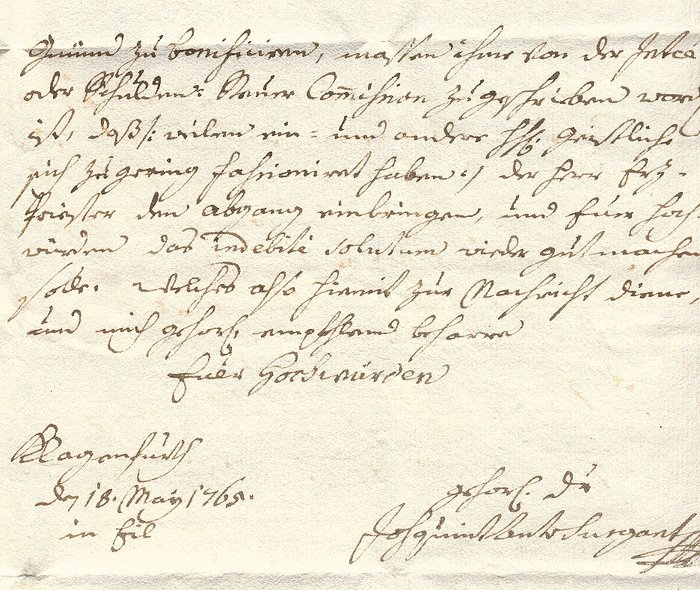 Gmünd zu bonificiren, massen ihme von der
oder Schulden: Steuer Com̄ission zugeschrieben word
ist, daß /: weilen ein= und andere H: H: Geistliche
sich zu gering fassioniret haben :/ der Herr Erz-
Priester den abgang einbringen, und Euer hoch
würden das indebite solutum wieder gutmachen
solle. Welches also hiemit zur Nachricht diene
und mich gehors. empfehlend beharre
Euer Hochwürden
Klagenfurth
den 18. May 1765.
in Eil
gehors. Dr